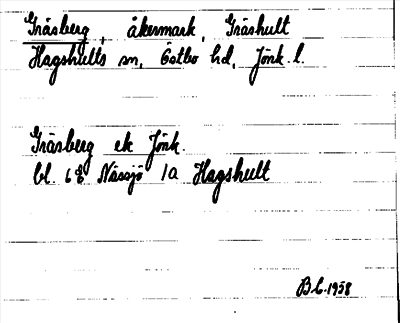 Gräsberg, åkermark, Gräshult
Hagshults sn, Östbo hd, Jönk. l.
Gräsberg ek Jönk.
bl. 6E Nässjö 1a Hagshult
B.L. 1958